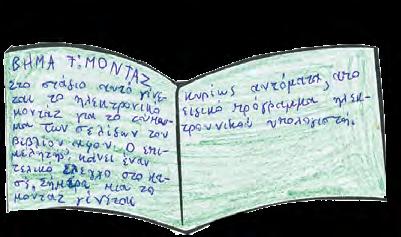 ΒΗΜΑ 7: ΜΟΝΤΑΖ
Στο στάδιο αυτό γίνε-
ται το ηλεκτρονικό
μοντάζ για το
μα των σελίδων του
βιβλίου μου. Ο επι-
μελητής κάνει έναν
τελικό έλεγχο στο
Σήμερα μια το
μοντάζ γίνεται
κυρίως αυτόματα, από
ειδικό πρόγραμμα ηλεκ-
τρονικού υπολογιστή.